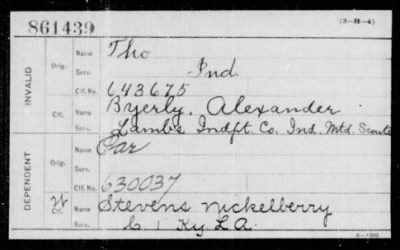 861439
(3-H-4)
INVALID
Orig.
Name
Tho
Serv.
Ind
Ctf. No.
643675
Ctf.
Name
Byerly, Alexander
Serv.
Lamb's Indpt. Co. Ind. Mtd. Scouts
DEPENDENT
Orig.
Name
Par
Serv.
Ctf. No.
630037
W
Ctf.
Name
Stevens Nickelberry
Serv.
L. 1" Ky. L.A.